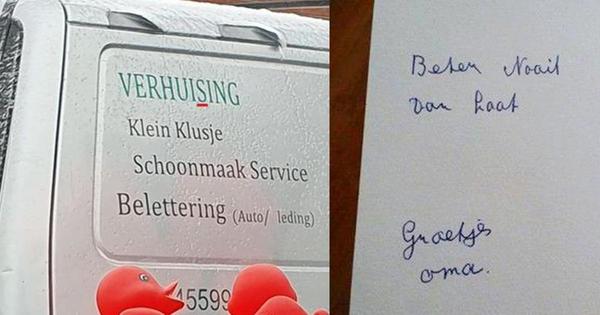 VERHUISING
Klein Klusje
Schoonmaak Service
Belettering (Auto/ leding)
45599
Beter Nooit
van Laat
Groetjes
oma.